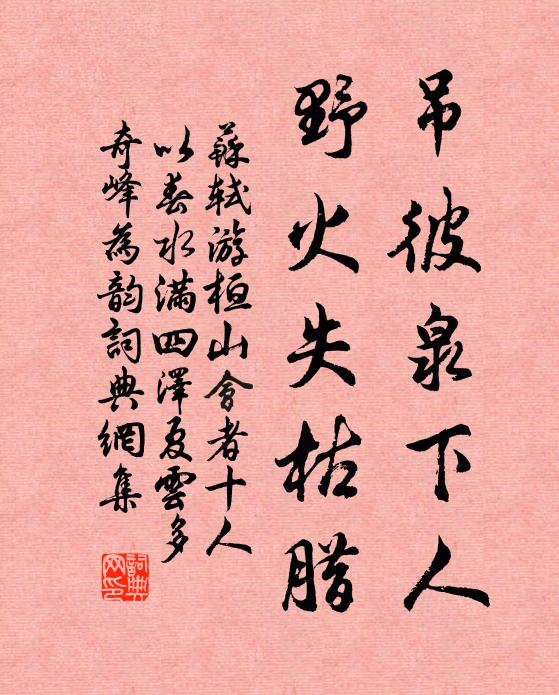 吊彼泉下人
野火失枯腊
蘇軾游桓山會者十人
以春水滿四澤夏雲多
奇峰為韵詞典網集
詞典
网印